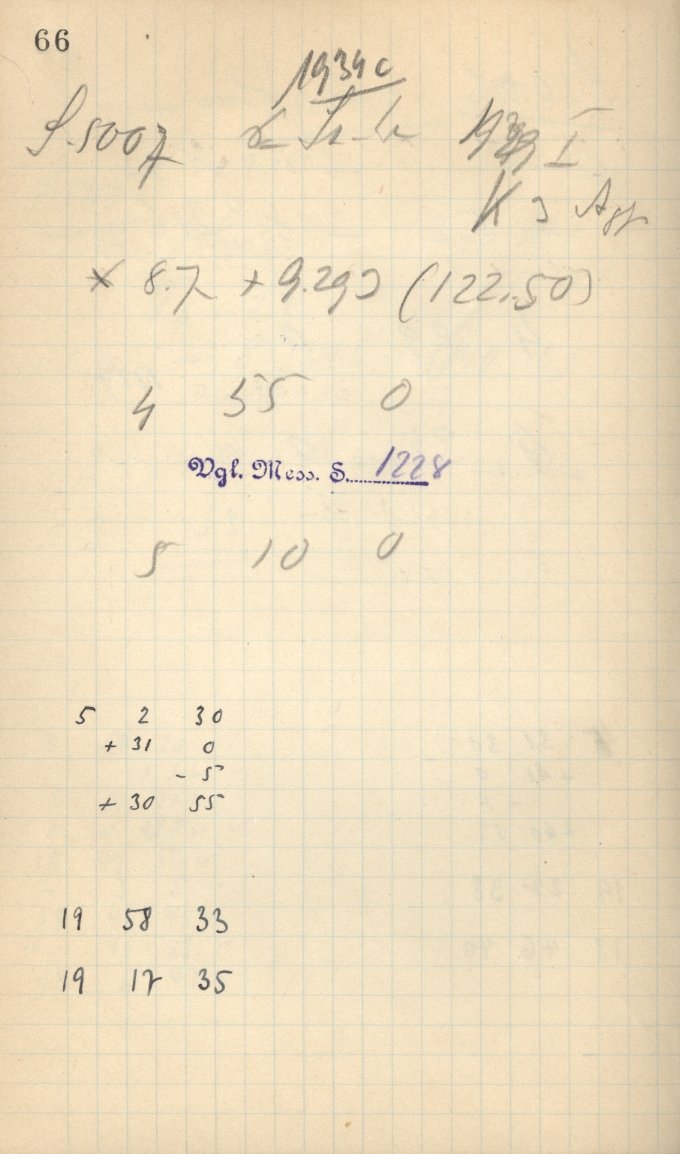 66
1934 c
S. 5007
I
K
8.7 + 9.29 (122.50)
4 55 0
Vgl. Mess. S. 1228
5 10 0
5 2 30
+ 31 0
- 5
+ 30 55
19 58 33
19 17 35